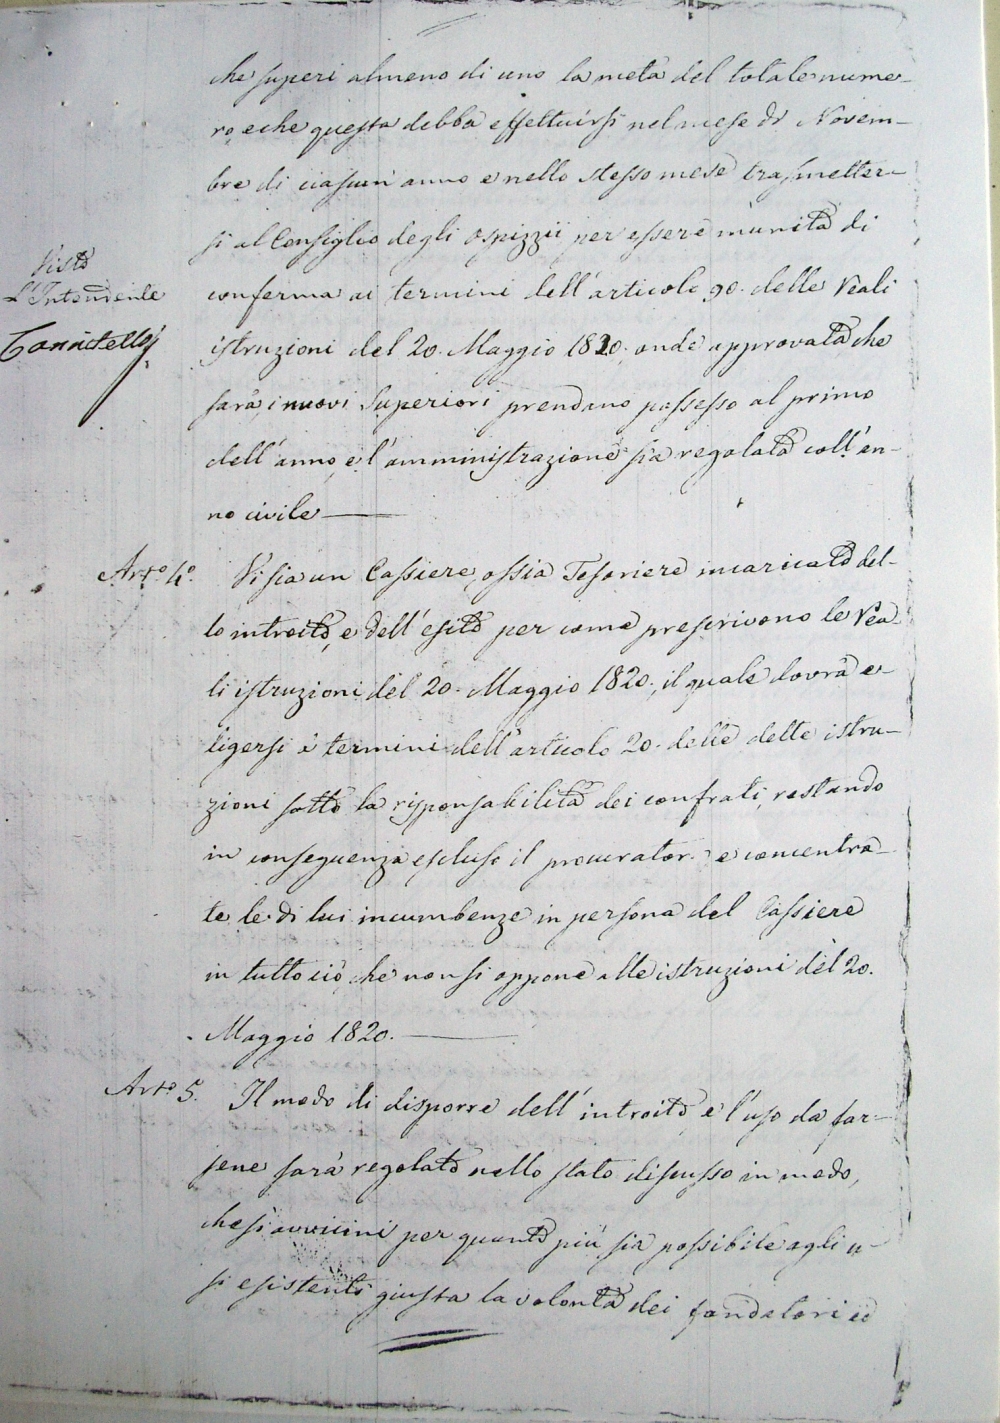 che superi almeno di uno la metà del totale nume-
ro, e che questa debba effettuirsi nel mese di Novem-
bre di ciascun anno e nello stesso mese trasmetter-
si al Consiglio degli Ospizzii per essere munita di
Visto
L'Intendente
conferma ai termini dell'articolo 90. delle Reali
istruzioni del 20. Maggio 1820. onde approvata che
sarà, i nuovi Superiori prendano possesso al primo
dell'anno, e l'amministrazione sia regolata coll'an-
no civile
Arto. 4.o Vi sia un Cassiere, ossia Tesoriere incaricato del-
lo introito, e dell'esito per come prescrivono le Rea-
li istruzioni del 20. Maggio 1820., il quale dovrà e-
ligersi à termini dell'articolo 20. delle dette istru-
zioni sotto la risponsabilità dei confrati, restando
in conseguenza escluso il procurator. e concentra-
te le di lui incumbenze in persona del Cassiere
in tutto ciò, che non si oppone alle istruzioni del 20.
Maggio 1820.
Arto. 5. Il modo di disporre dell'introito, e l'uso da far-
sene sarà regolato nello stato discusso in modo,
che si avvicini per quanto più sia possibile agli u-
si esistenti giusta la volontà dei fondatori ed